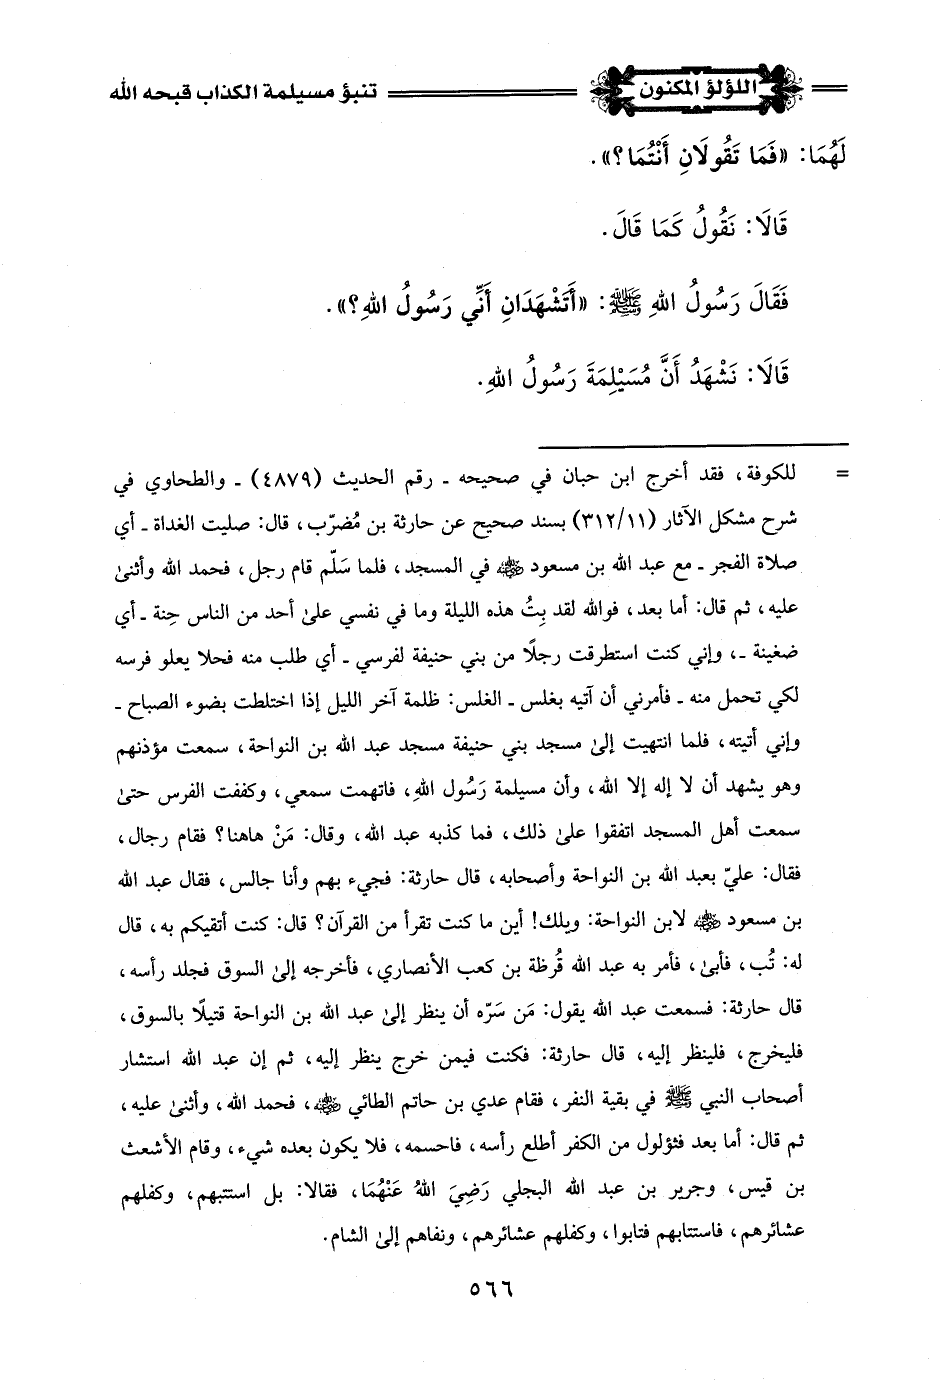 اللؤلؤ المكنون
تنبؤ مسيلمة الكذاب قبحه الله
لَهُمَا: «فَمَا تَقُولَانِ أَنْتُمَا؟».
قَالَا: نَقُولُ كَمَا قَالَ.
فَقَالَ رَسُولُ اللهِ ﷺ: «أَتَشْهَدَانِ أَنِّي رَسُولُ اللهِ؟».
قَالَا: نَشْهَدُ أَنَّ مُسَيْلِمَةَ رَسُولُ اللهِ.
= للكوفة، فقد أخرج ابن حبان في صحيحه - رقم الحديث (٤٨٧٩) - والطحاوي في
شرح مشكل الآثار (٣١٢/١١) بسند صحيح عن حارثة بن مُضرّب، قال: صليت الغداة - أي
صلاة الفجر - مع عبد الله بن مسعود رضي الله عنه في المسجد، فلما سَلّم قام رجل، فحمد الله وأثنىٰ
عليه، ثم قال: أما بعد، فوالله لقد بِتُ هذه الليلة وما في نفسي علىٰ أحد من الناس حِنة - أي
ضغينة -، وإني كنت استطرقت رجلًا من بني حنيفة لفرسي - أي طلب منه فحلا يعلو فرسه
لكي تحمل منه - فأمرني أن آتيه بغلس - الغلس: ظلمة آخر الليل إذا اختلطت بضوء الصباح -
وإني أتيته، فلما انتهيت إلىٰ مسجد بني حنيفة مسجد عبد الله بن النواحة، سمعت مؤذنهم
وهو يشهد أن لا إله إلا الله، وأن مسيلمة رَسُول اللهِ، فاتهمت سمعي، وكففت الفرس حتىٰ
سمعت أهل المسجد اتفقوا علىٰ ذلك، فما كذبه عبد الله، وقال: مَنْ هاهنا؟ فقام رجال،
فقال: عليّ بعبد الله بن النواحة وأصحابه، قال حارثة: فجيء بهم وأنا جالس، فقال عبد الله
بن مسعود رضي الله عنه لابن النواحة: ويلك! أين ما كنت تقرأ من القرآن؟ قال: كنت أتقيكم به، قال
له: تُب، فأبىٰ، فأمر به عبد الله قُرظة بن كعب الأنصاري، فأخرجه إلىٰ السوق فجلد رأسه،
قال حارثة: فسمعت عبد الله يقول: مَن سَرّه أن ينظر إلىٰ عبد الله بن النواحة قتيلًا بالسوق،
فليخرج، فلينظر إليه، قال حارثة: فكنت فيمن خرج ينظر إليه، ثم إن عبد الله استشار
أصحاب النبي ﷺ في بقية النفر، فقام عدي بن حاتم الطائي رضي الله عنه، فحمد الله، وأثنىٰ عليه،
ثم قال: أما بعد فثؤلول من الكفر أطلع رأسه، فاحسمه، فلا يكون بعده شيء، وقام الأشعث
بن قيس، وجرير بن عبد الله البجلي رَضِيَ اللهُ عَنْهُمَا، فقالا: بل استتبهم، وكفلهم
عشائرهم، فاستتابهم فتابوا، وكفلهم عشائرهم، ونفاهم إلىٰ الشام.
٥٦٦